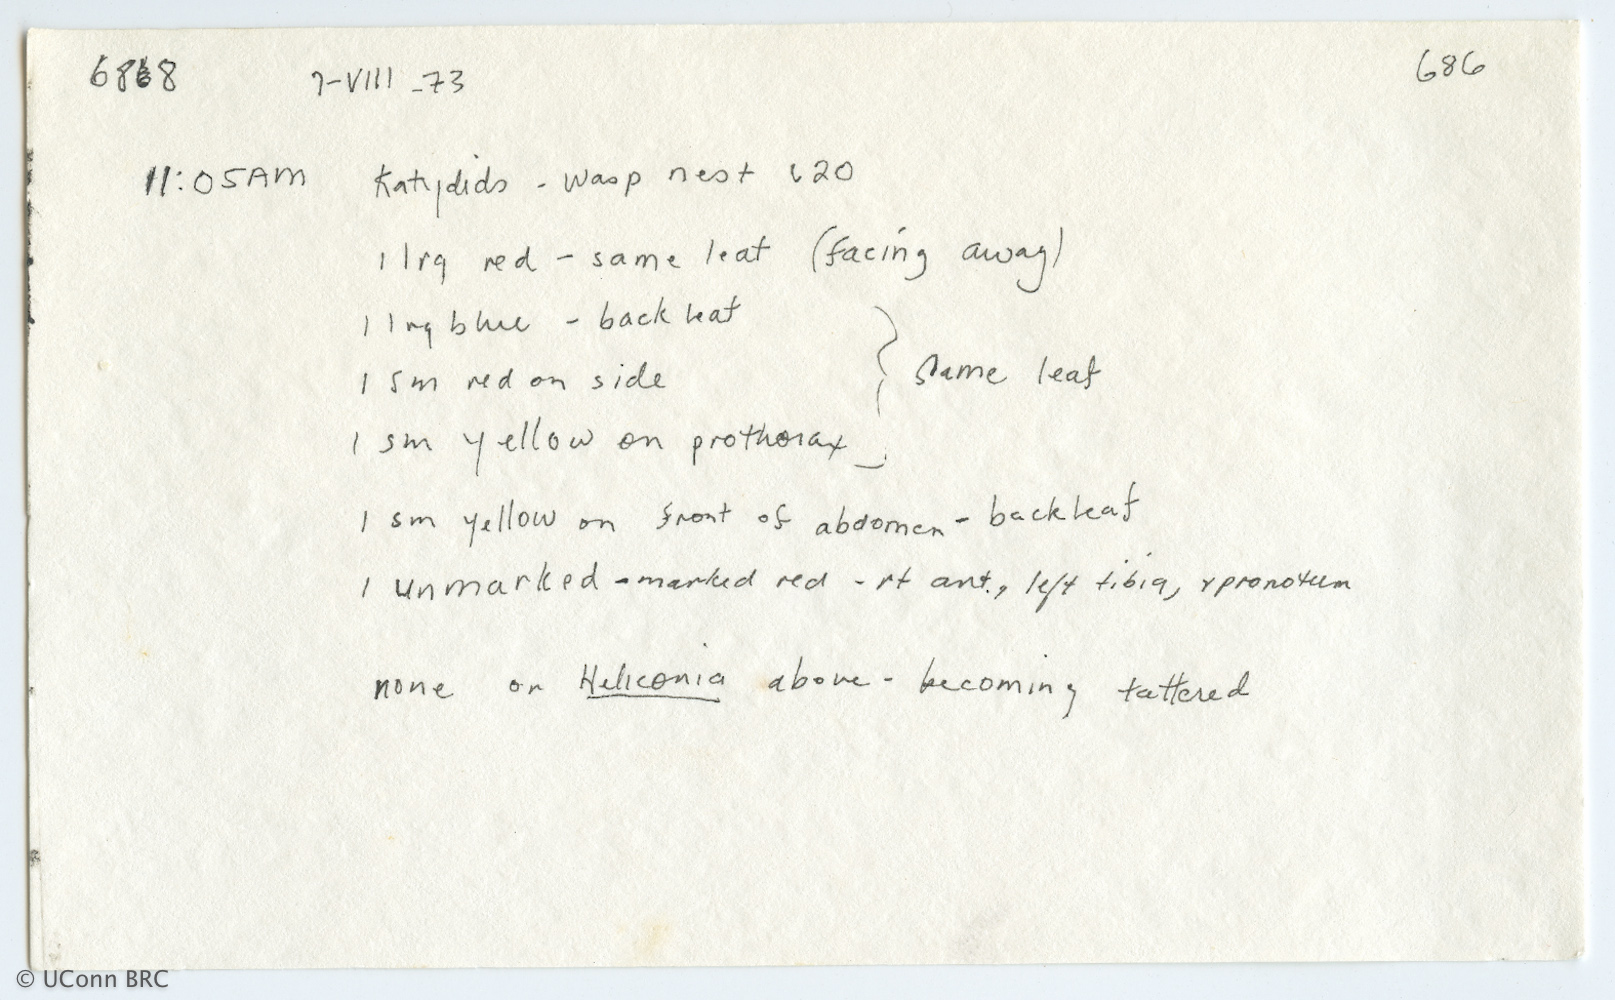 6868 7-VIII-73 686
11:05AM Katydids - wasp nest 620
1 lrg red - same leaf (facing away)
1 lrg blue - back leaf
1 sm red on side } same leaf
1 sm yellow on prothorax
1 sm yellow on front of abdomen - back leaf
1 unmarked - marked red - rt ant., left tibia, r pronotum
none on Heliconia above - becoming tattered
© UConn BRC